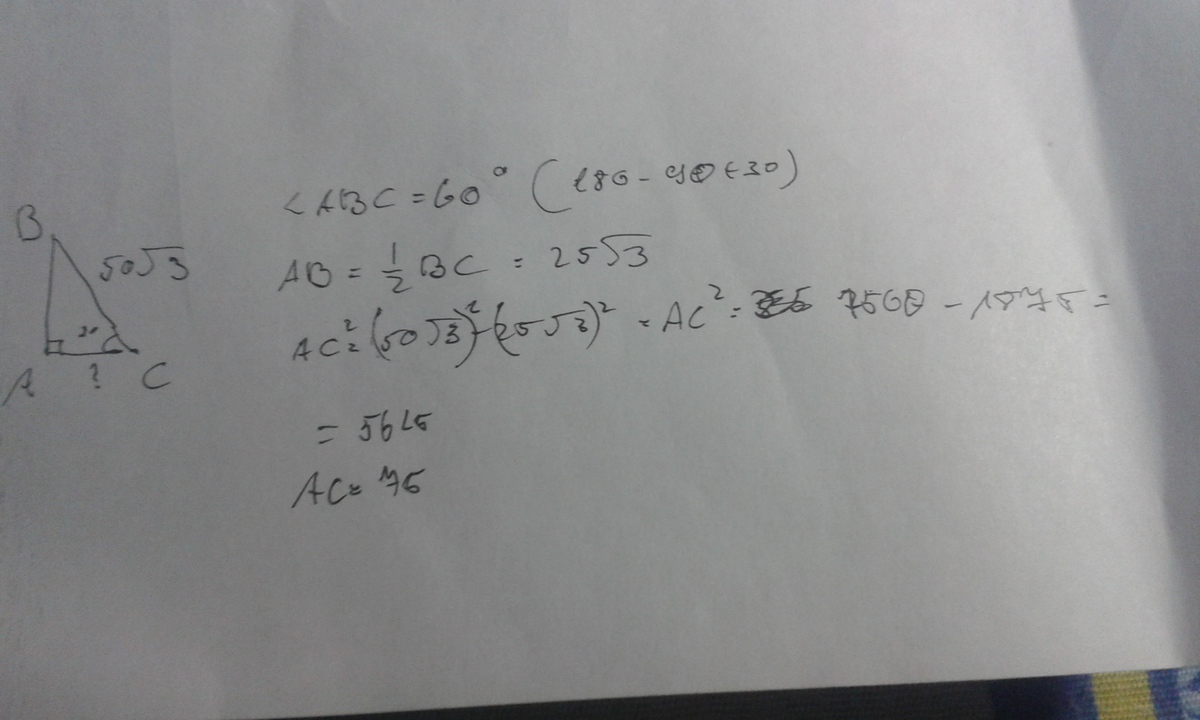 B
50√3
30°
A ? C
< ABC = 60° (180 - 90 + 30)
AB = 1/2 BC = 25√3
AC² = (50√3)² - (25√3)² = AC² = 7500 - 1875 =
= 5625
AC = 75